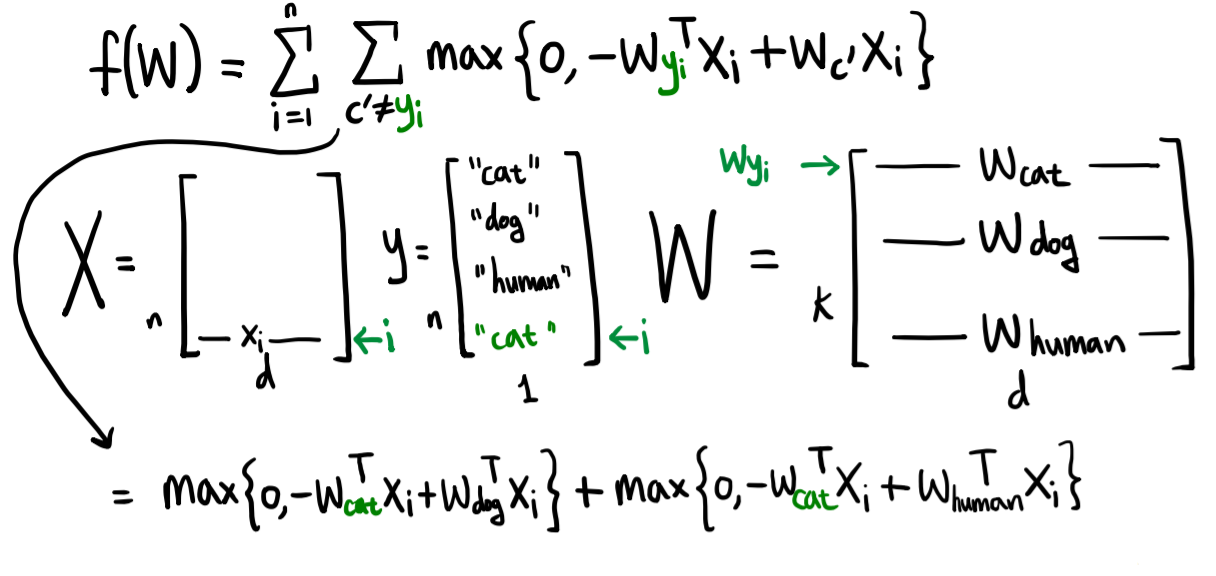 n
f(W) = Σ Σ max{0, -W_{y_i}^T X_i + W_{c'} X_i}
i=1 c'≠y_i
X = [ — x_i — ] ← i
n
d
y = [ "cat" "dog" "human" "cat" ] ← i
n
1
W_{y_i} →
W = [ — W_cat — — W_dog — — W_human — ]
K
d
= max{0, -W_cat^T X_i + W_dog^T X_i} + max{0, -W_cat^T X_i + W_human^T X_i}